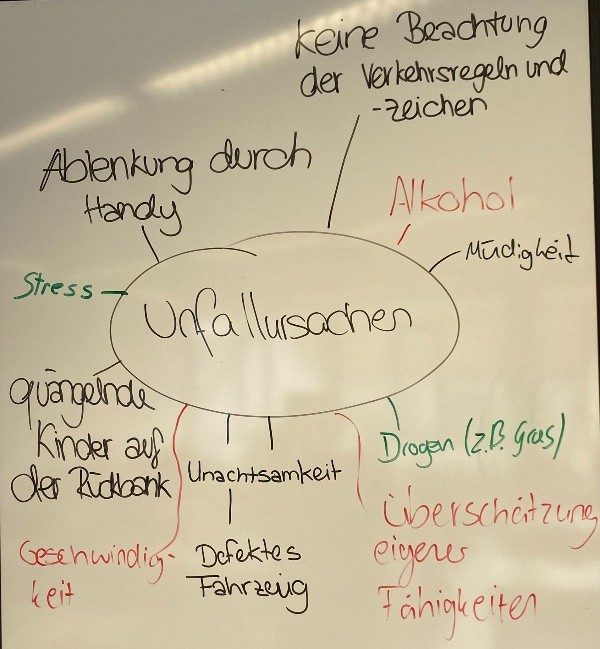 Keine Beachtung
der Verkehrsregeln und
-zeichen
Ablenkung durch
Handy
Alkohol
Müdigkeit
Stress
Unfallursachen
quängelnde
Kinder auf
der Rückbank
Unachtsamkeit
Drogen (z.B. Gras)
Geschwindig-
keit
Defektes
Fahrzeug
Überschätzung
eigener
Fähigkeiten